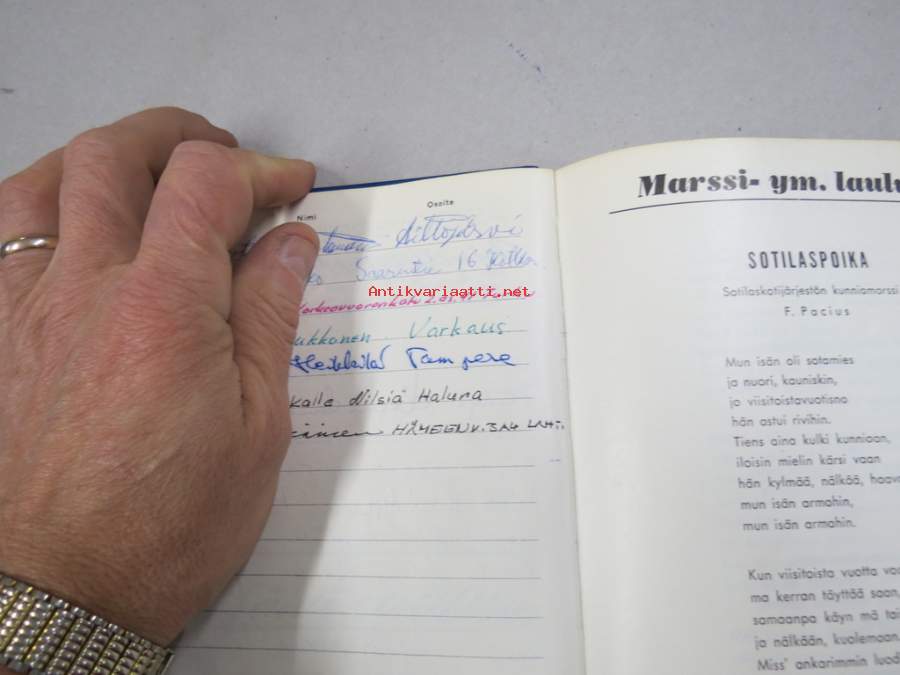 Osoite
Nimi
Siltojärvi
16
Antikvariaatti.net
ukkonen. Varkaus
Tampere
Kalle Nilsiä Haluna
HÄMEENK. 3A4 LAHTI
Marssi- ym. laulu
SOTILASPOIKA
Sotilaskotijärjestön kunniamarssi
F. Pacius
Mun isän oli sotamies
ja nuori, kauniskin,
jo viisitoistavuotisna
hän astui rivihin.
Tiens aina kulki kunniaan,
iloisin mielin kärsi vaan
hän kylmää, nälkää, haavo
mun isän armahin,
mun isän armahin.
Kun viisitoista vuotta vaa
ma kerran täyttää saan,
samaanpa käyn mä tai
ja nälkään, kuolemaan
Miss' ankarimmin luodi